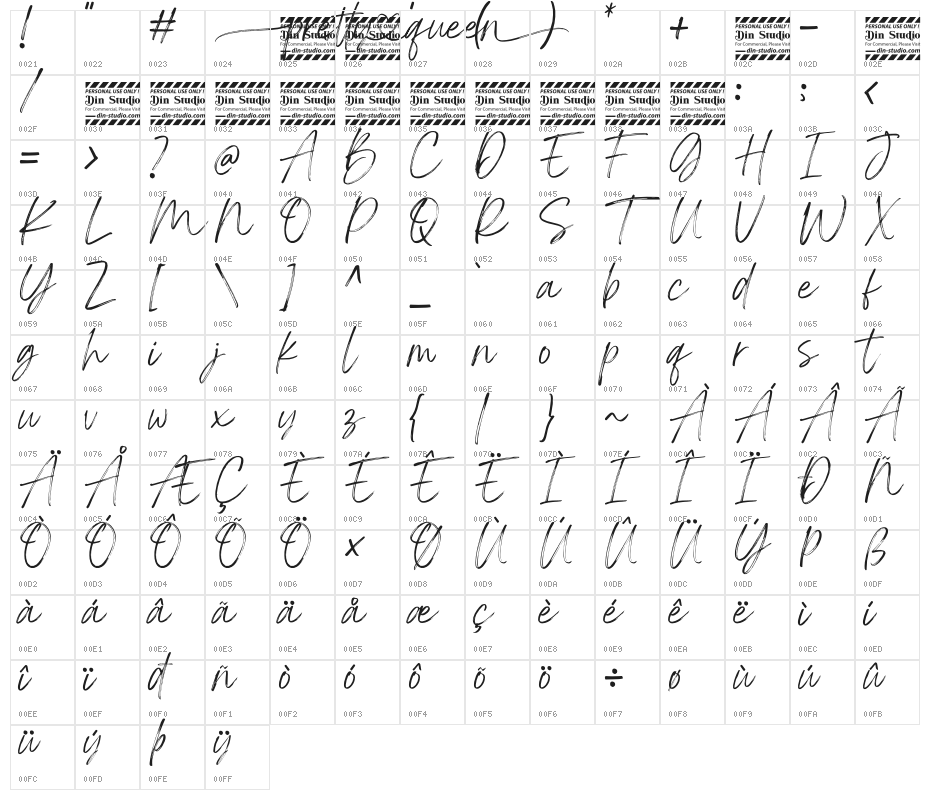 ! " # queen ( ) * + -
0021 0022 0023 0024 0025 0026 0027 0028 0029 002A 002B 002C 002D 002E
PERSONAL USE ONLY !
Din Studio
For Commercial, Please Visit
din-studio.com
/ : ; <
002F 0030 0031 0032 0033 0034 0035 0036 0037 0038 0039 003A 003B 003C
= > ? @ A B C D E F G H I J
003D 003E 003F 0040 0041 0042 0043 0044 0045 0046 0047 0048 0049 004A
K L M N O P Q R S T U V W X
004B 004C 004D 004E 004F 0050 0051 0052 0053 0054 0055 0056 0057 0058
Y Z [ \ ] ^ _ ` a b c d e f
0059 005A 005B 005C 005D 005E 005F 0060 0061 0062 0063 0064 0065 0066
g h i j k l m n o p q r s t
0067 0068 0069 006A 006B 006C 006D 006E 006F 0070 0071 0072 0073 0074
u v w x y z { | } ~ À Á Â Ã
0075 0076 0077 0078 0079 007A 007B 007C 007D 007E 00C0 00C1 00C2 00C3
Ä Å Æ Ç È É Ê Ë Ì Í Î Ï Ð Ñ
00C4 00C5 00C6 00C7 00C8 00C9 00CA 00CB 00CC 00CD 00CE 00CF 00D0 00D1
Ò Ó Ô Õ Ö × Ø Ù Ú Û Ü Ý Þ ß
00D2 00D3 00D4 00D5 00D6 00D7 00D8 00D9 00DA 00DB 00DC 00DD 00DE 00DF
à á â ã ä å æ ç è é ê ë ì í
00E0 00E1 00E2 00E3 00E4 00E5 00E6 00E7 00E8 00E9 00EA 00EB 00EC 00ED
î ï ð ñ ò ó ô õ ö ÷ ø ù ú û
00EE 00EF 00F0 00F1 00F2 00F3 00F4 00F5 00F6 00F7 00F8 00F9 00FA 00FB
ü ý þ ÿ
00FC 00FD 00FE 00FF